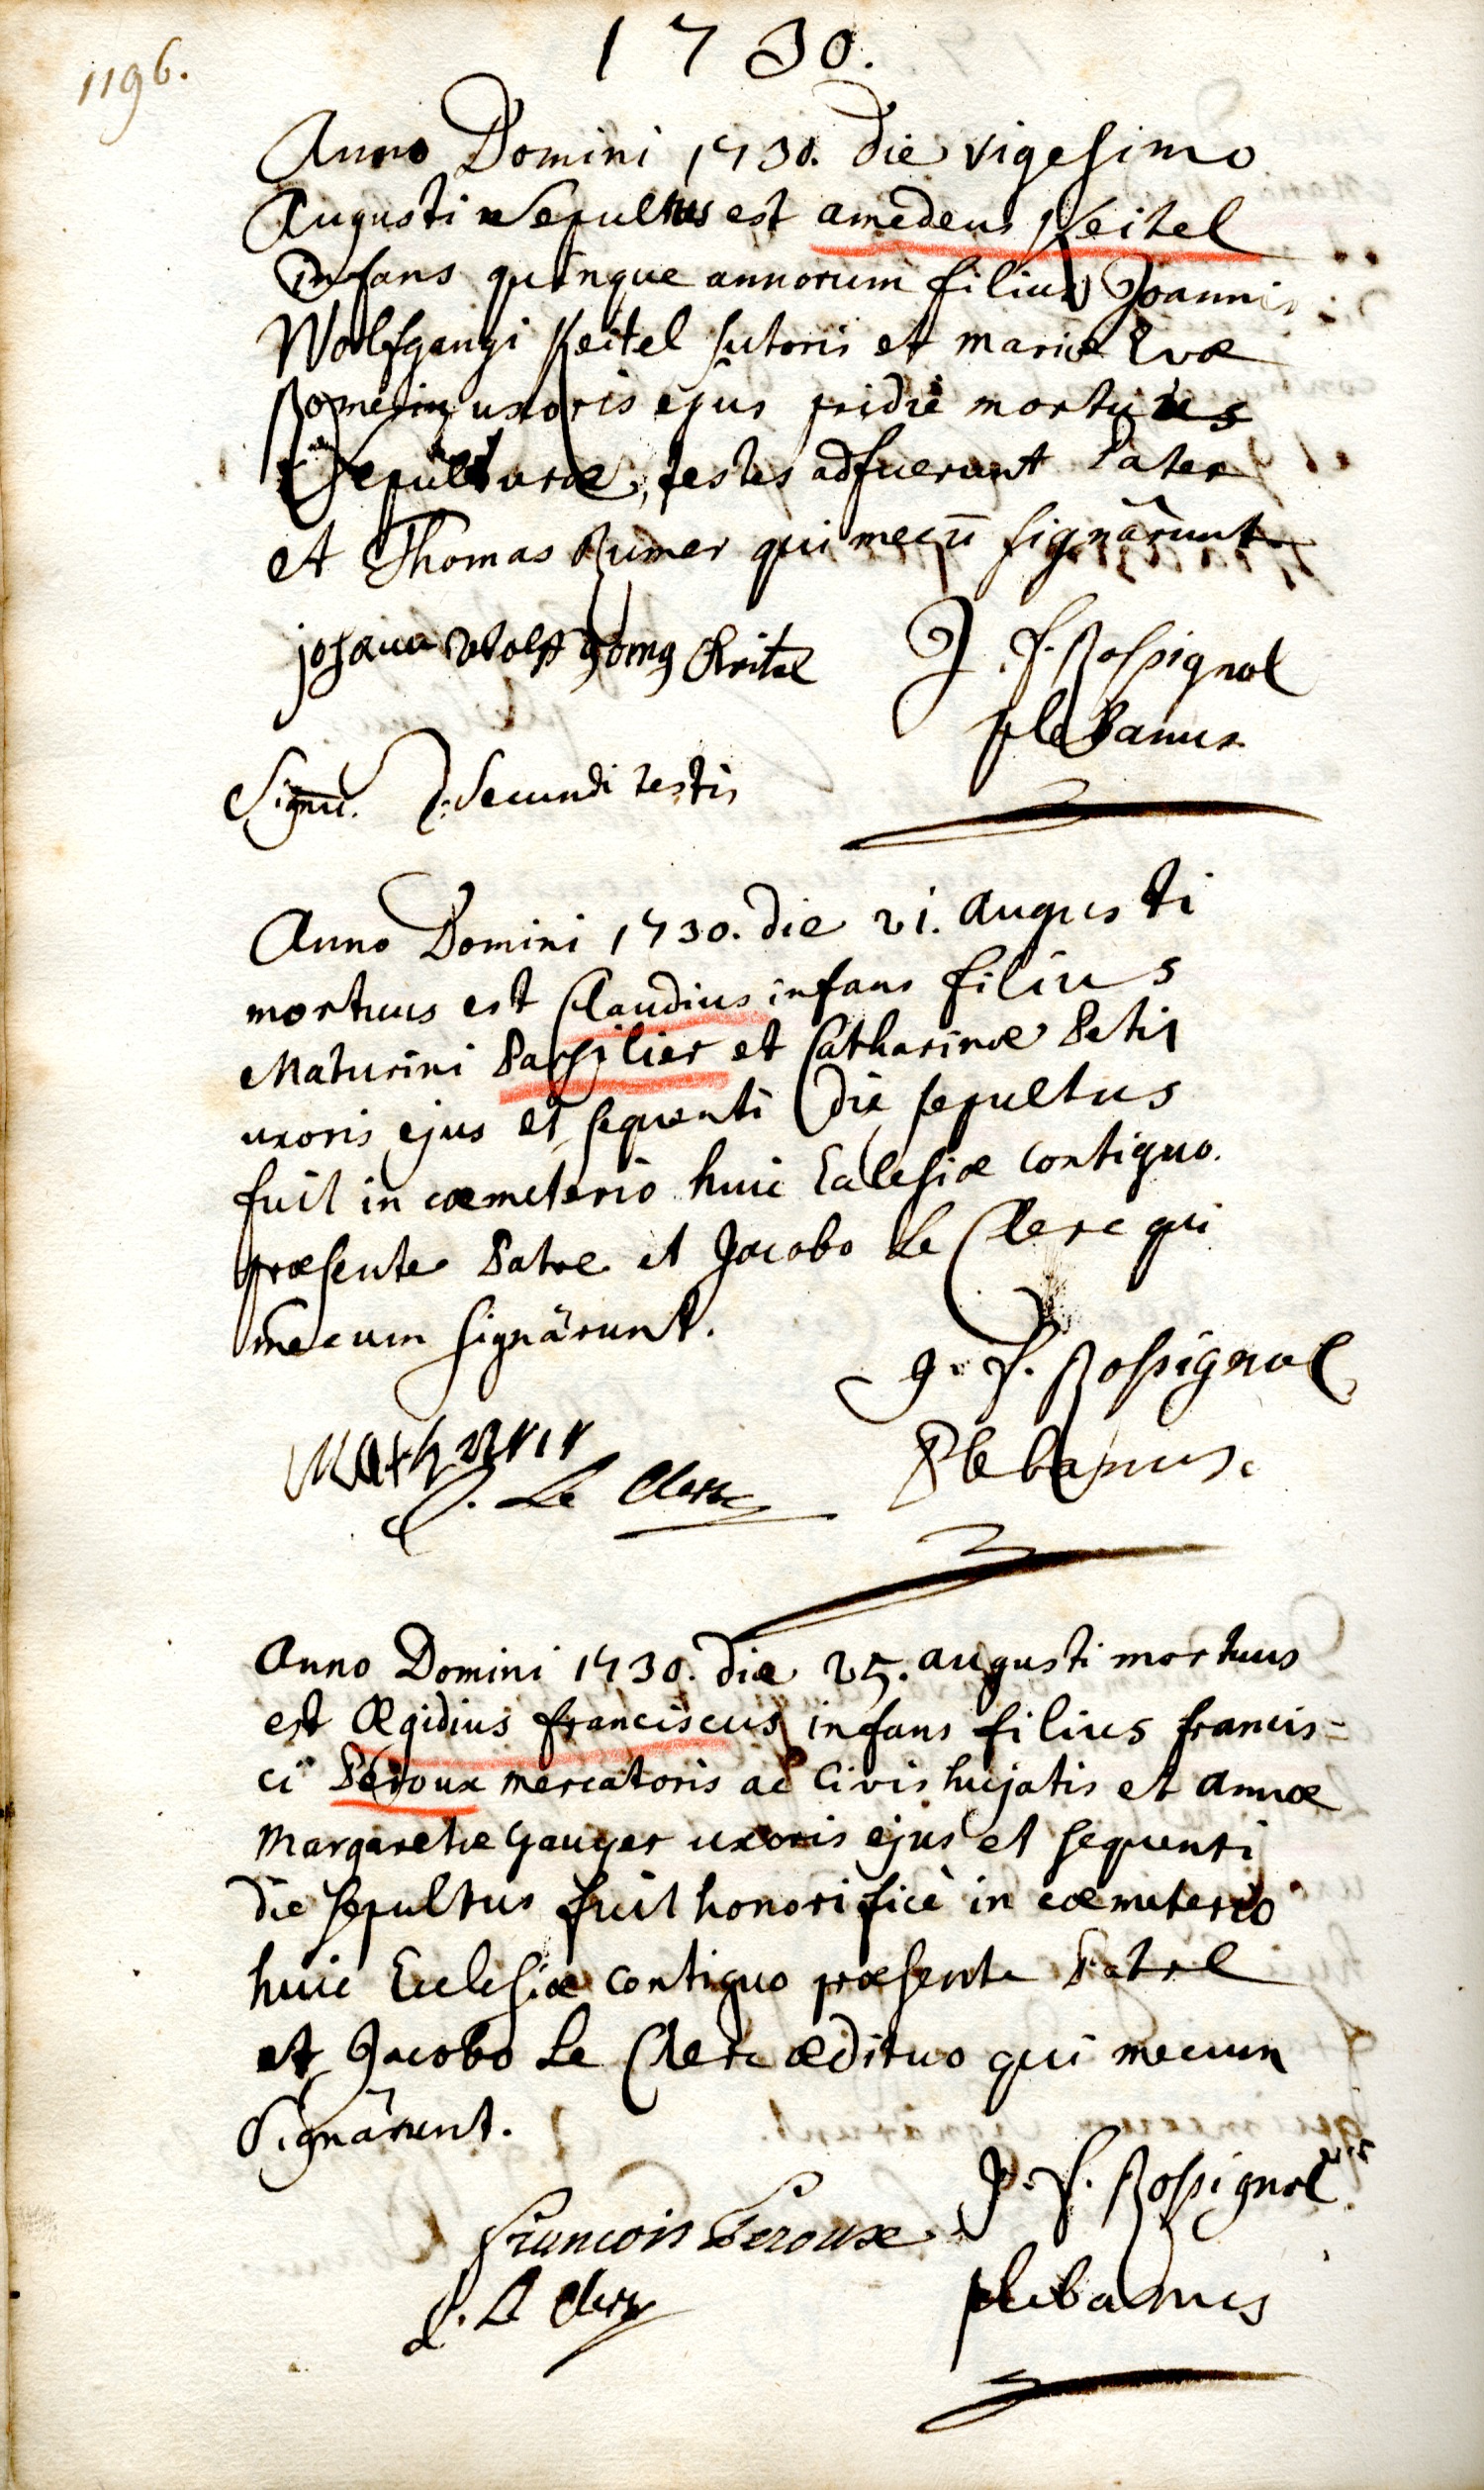 1730.
1196.
Anno Domini 1730. die vigesimo
Augusti sepultus est amedeus Keitel
infans quinque annorum filius Joannis
Wolfgangi Keitel sutoris et mariæ Evæ
uxoris ejus pridie mortuus
Sepulturæ, testes adfuerunt Pater
et Thomas Rumer qui mecū signârunt
johann Wolf gang Keitel
J. f. Rossignol
plebanus
Signū. secundi testis
Anno Domini 1730. die 21. Augusti
mortuus est Claudius infans filius
Maturini Passilier et Catharinæ Petit
uxoris ejus et sequenti die sepultus
fuit in cœmeterio huic Ecclesiæ contiguo.
præsente Patre et Jacobo Le Clerc qui
mecum signârunt.
J. f. Rossignol
Plebanus.
Mathurin
J. Le Clerc
Anno Domini 1730. die 25. augusti mortuus
est Ægidius franciscus infans filius francis-
ci Peroux mercatoris ac Civis hujatis et annæ
Margaretæ Gauger uxoris ejus et sequenti
die sepultus fuit honorificè in cœmeterio
huic Ecclesiæ contiguo præsente Patre
et Jacobo Le Clerc ædituo qui mecum
signârunt.
J. f. Rossignol
plebanus
francois Peroux
J. Le Clerc